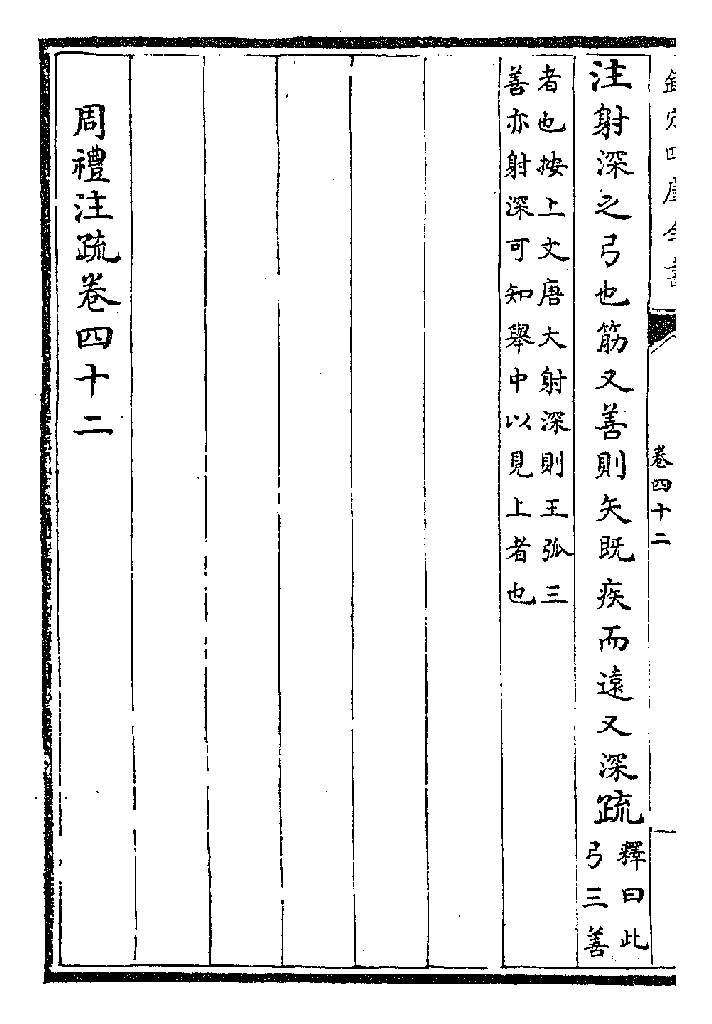 欽定四庫全書
卷四十二
注射深之弓也筋又善則矢既疾而遠又深疏釋曰此
弓三善
者也按上文唐大射深則王弧三
善亦射深可知舉中以見上者也
周禮注疏卷四十二